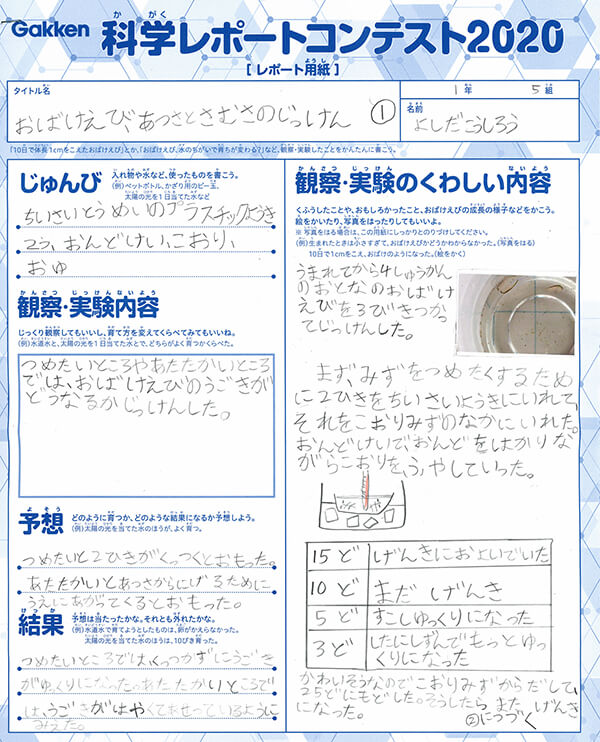 Gakken 科学レポートコンテスト2020
かがく
[ レポート用紙 ]
タイトル名
おばけえび、あつさとさむさのじっけん ①
1年 5組
名前
よしだこうしろう
「10日で体長1cmをこえたおばけえび」とか、「おばけえび、水のちがいで育ちが変わる？」など、観察・実験したことをかんたんに書こう。
じゅんび
入れ物や水など、使ったものを書こう。
(例)ペットボトル、かざり用のビー玉、
太陽の光を1日当てた水など
ちいさいとうめいのプラスチックようき
2こ、おんどけい、こおり、
おゆ
観察・実験内容
じっくり観察してもいいし、育て方を変えてくらべてみてもいいね。
(例)水道水と、太陽の光を1日当てた水とで、どちらがよく育つかくらべた。
つめたいところやあたたかいところ
では、おばけえびのうごきが
どうなるかじっけんした。
予想
どのように育つか、どのような結果になるか予想しよう。
(例)太陽の光を当てた水のほうが、よく育つ。
つめたいと2ひきがくっつくとおもった。
あたたかいとあつさからにげるために
うえにあがってくるとおもった。
結果
予想は当たったかな。それとも外れたかな。
(例)水道水で育てようとしたものは、卵がかえらなかった。
太陽の光を当てた水のほうは、10ぴき育った。
つめたいところでは、くっつかずにうごき
がゆっくりになった。あたたかいところで
は、うごきがはやくてあせっているように
みえた。
観察・実験のくわしい内容
くふうしたことや、おもしろかったこと、おばけえびの成長の様子などをかこう。
絵をかいたり、写真をはったりしてもいいよ。
※ 写真をはる場合は、この用紙にしっかりとのりづけしてください。
(例)生まれたときは小さすぎて、おばけえびかどうかわからなかった。(写真をはる)
10日で1cmをこえ、おばけのようになった。(絵をかく)
うまれてから4しゅうかん
のおとなのおばけ
えびを3びきつかっ
てじっけんした。
まず、みずをつめたくするため
に2ひきをちいさいようきにいれて、
それをこおりみずのなかにいれた。
おんどけいで、おんどをはかりな
がらこおりを、ふやしていった。
15ど げんきにおよいでいた
10ど まだ げんき
5ど すこしゆっくりになった
3ど したにしずんでもっとゆっ
くりになった
かわいそうなのでこおりみずからだして、
25どにもどした。そうしたら、また、げんき
になった。 ②につづく